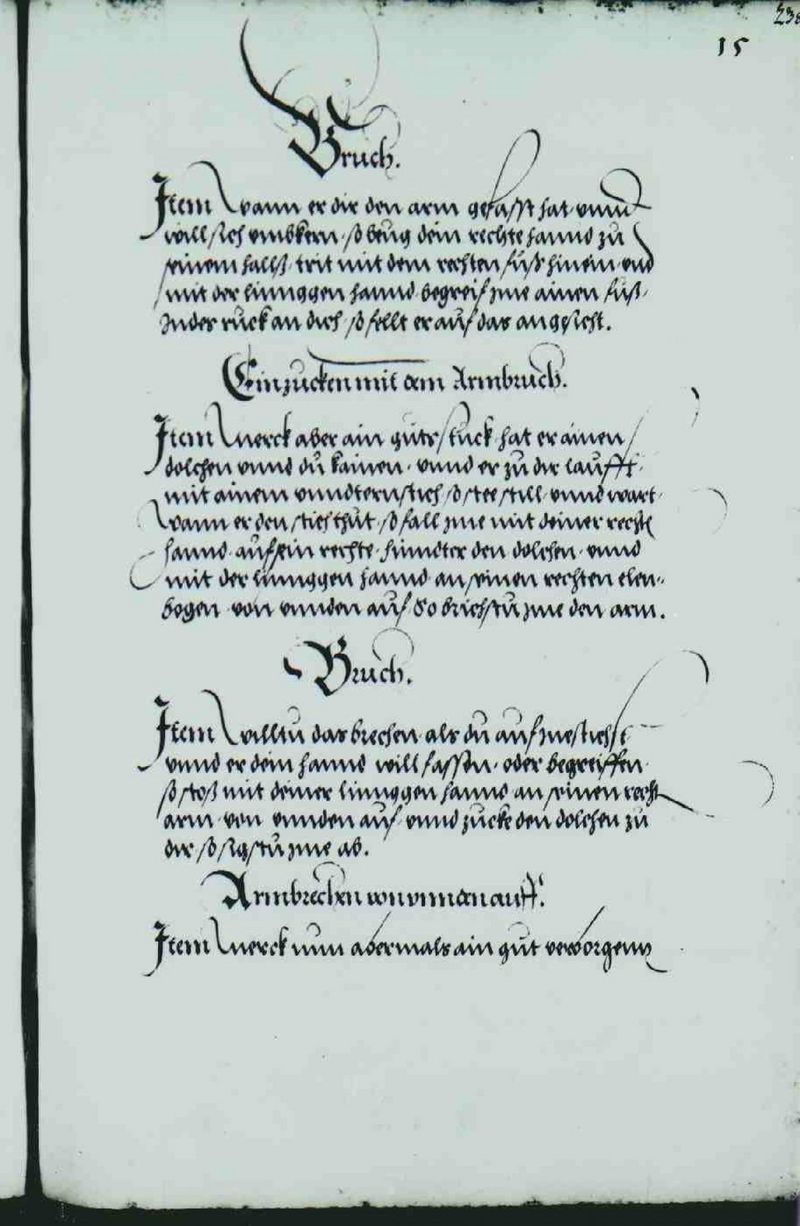 15
Bruch.
Item wann er dir den arm gefasst hat vnnd
will sich vmbkern, so beug dein rechte hannd zu
seinem hallß, trit mit dem rechten fuß hinein vnd
mit der linnggen hannd begreif jme ainen fuß,
Inder ruck an dich, so fellt er auf das angesicht.
Einzucken mit dem Armbruch.
Item merck aber ain guts stuck, hat er ainen
dolchen vnnd du kainen, vnnd er zu dir laufft,
mit ainem vnndternstich, so stee still vnnd wart,
wann er den stich thut, so fall jme mit deiner recht
hannd auf sein rechte, hinndter den dolchen, vnnd
mit der linnggen hannd an seinen rechten elen,,
bogen, von vnnden auf So brichstu jme den arm.
Bruch.
Item willtu das brechen, als du auf jne stichst
vnnd er dein hannd will fassen, oder begreiffen,
so stoß mit deiner linnggen hannd an seinen recht
arm, von vnnden auf, vnnd zucke den dolchen zu
dir, so sigstu jme ab.
Armbrechen von vnnden auff.
Item merck nun abermals ain gut verborgenn